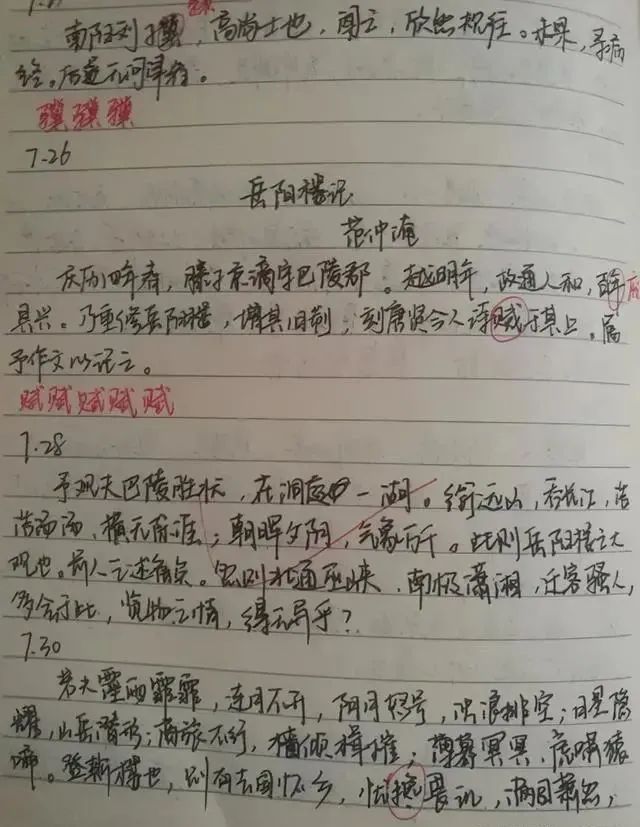 南阳刘子骥，高尚士也，闻之，欣然规往。未果，寻病
终。后遂无问津者。
骥骥骥
7.26
岳阳楼记
范仲淹
庆历四年春，滕子京谪守巴陵郡。越明年，政通人和，百废
具兴。乃重修岳阳楼，增其旧制，刻唐贤今人诗赋于其上。属
予作文以记之。
赋赋赋赋赋
7.28
予观夫巴陵胜状，在洞庭一湖。衔远山，吞长江，浩
浩汤汤，横无际涯；朝晖夕阴，气象万千。此则岳阳楼之大
观也。前人之述备矣。然则北通巫峡，南极潇湘，迁客骚人，
多会于此，览物之情，得无异乎？
7.30
若夫霪雨霏霏，连月不开，阴风怒号，浊浪排空；日星隐
耀，山岳潜形；商旅不行，樯倾楫摧；薄暮冥冥，虎啸猿
啼。登斯楼也，则有去国怀乡，忧谗畏讥，满目萧然，